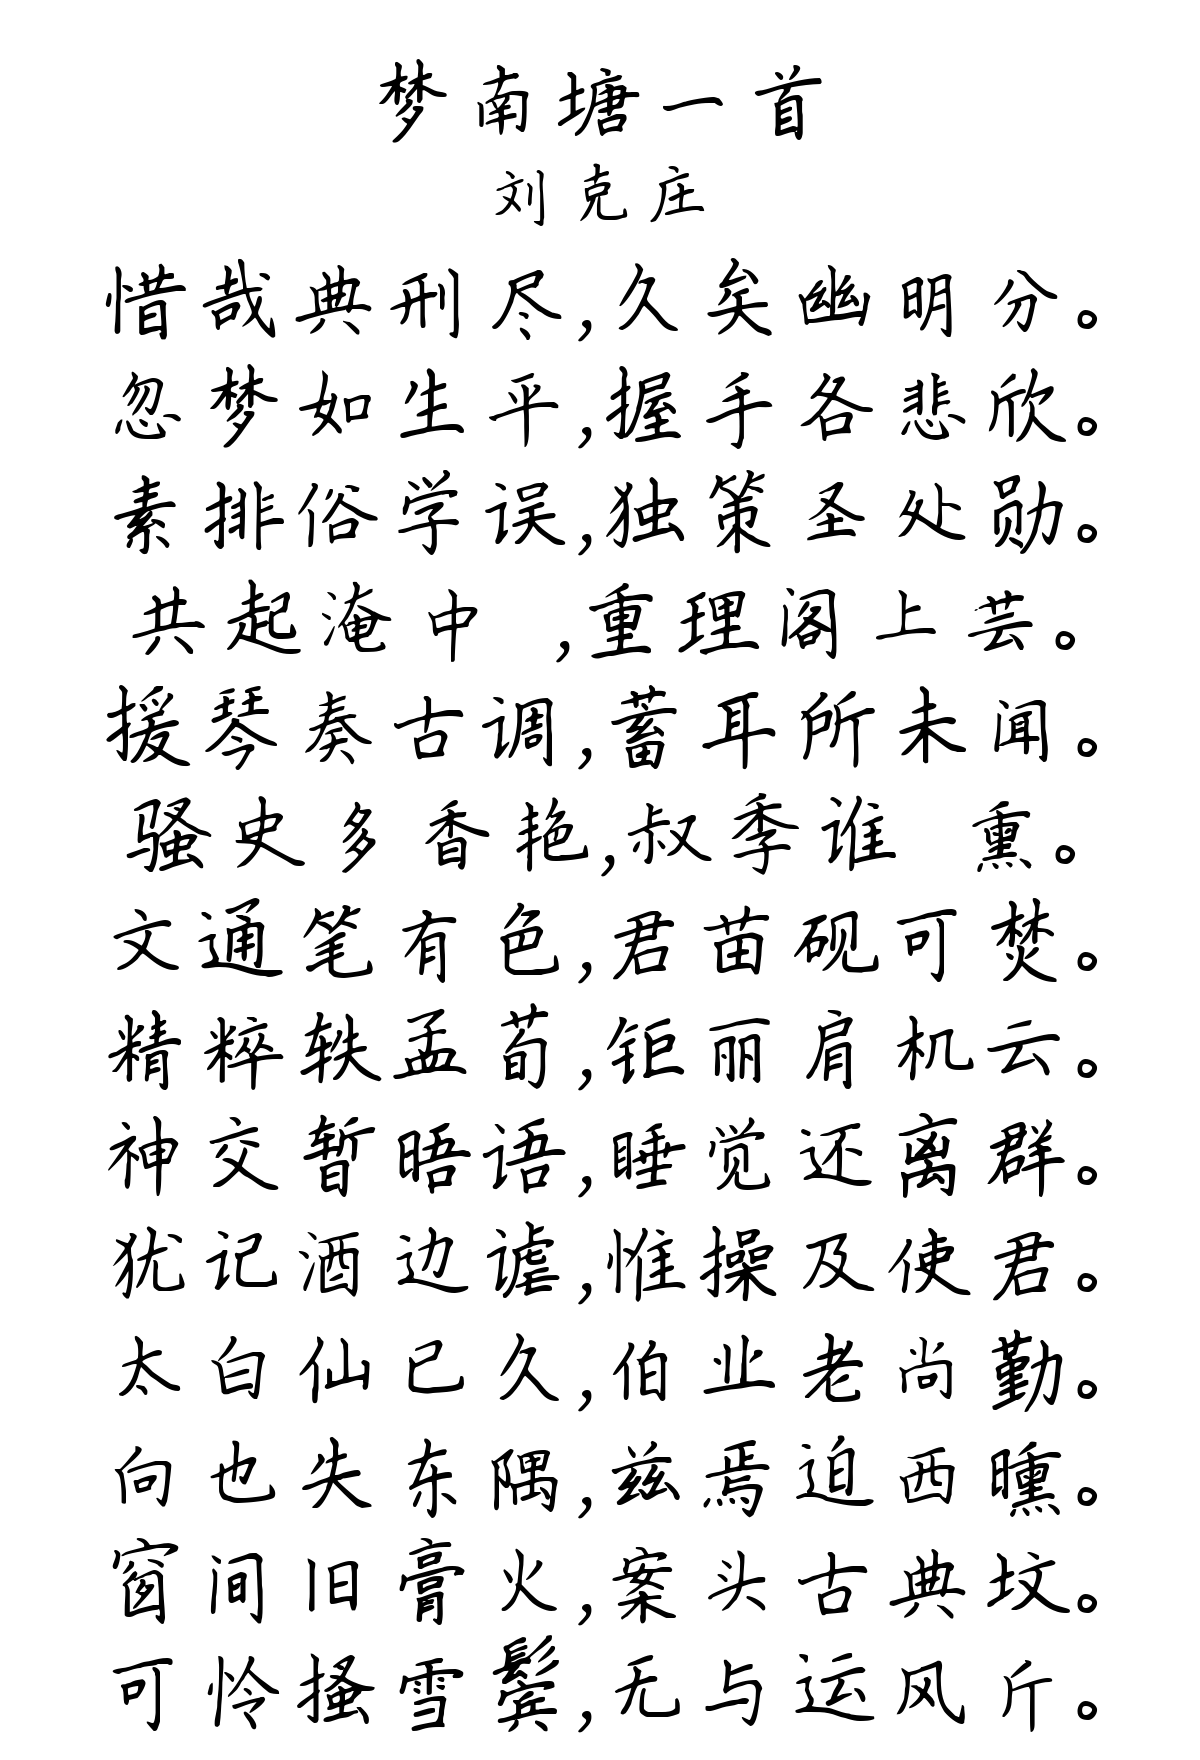 梦南塘一首
刘克庄
惜哉典刑尽,久矣幽明分。
忽梦如生平,握手各悲欣。
素排俗学误,独策圣处勋。
共起淹中 ,重理阁上芸。
援琴奏古调,蓄耳所未闻。
骚史多香艳,叔季谁 熏。
文通笔有色,君苗砚可焚。
精粹轶孟荀,钜丽肩机云。
神交暂晤语,睡觉还离群。
犹记酒边谑,惟操及使君。
太白仙已久,伯业老尚勤。
向也失东隅,兹焉迫西曛。
窗间旧膏火,案头古典坟。
可怜搔雪鬓,无与运风斤。